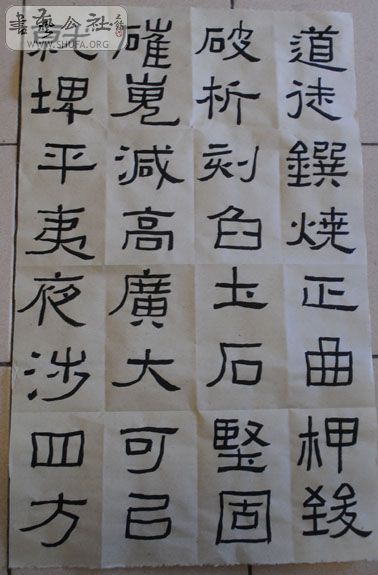 道徒鐉燒正曲柙致
破析刻臽土石堅固
磪嵬減高廣大可以
埤平夷夜涉四方
書藝公社
WWW.SHUFA.ORG